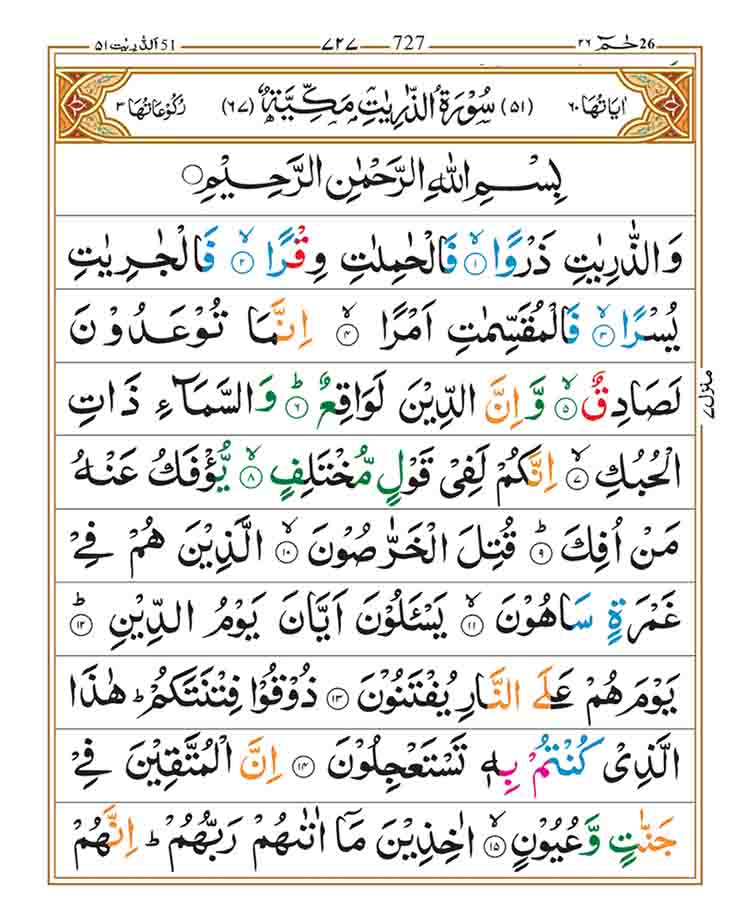 اَلذّٰرِيٰت ٥١ 51 ٧٢٧ 727 حٰمٓ ٢٦ 26
اٰيَاتُهَا ٦٠ (٥١) سُوْرَةُ الذّٰرِيٰتِ مَكِّيَّةٌ (٦٧) رُكُوْعَاتُهَا ٣
بِسْمِ اللّٰهِ الرَّحْمٰنِ الرَّحِيْمِ ۝
وَالذّٰرِيٰتِ ذَرْوًا ۙ۝١ فَالْحٰمِلٰتِ وِقْرًا ۙ۝٢ فَالْجٰرِيٰتِ
يُسْرًا ۙ۝٣ فَالْمُقَسِّمٰتِ اَمْرًا ۙ۝٤ اِنَّمَا تُوْعَدُوْنَ
لَصَادِقٌ ۙ۝٥ وَّاِنَّ الدِّيْنَ لَوَاقِعٌ ؕ۝٦ وَالسَّمَآءِ ذَاتِ
الْحُبُكِ ۙ۝٧ اِنَّكُمْ لَفِيْ قَوْلٍ مُّخْتَلِفٍ ۙ۝٨ يُّؤْفَكُ عَنْهُ
مَنْ اُفِكَ ؕ۝٩ قُتِلَ الْخَرّٰصُوْنَ ۙ۝١٠ الَّذِيْنَ هُمْ فِيْ
غَمْرَةٍ سَاهُوْنَ ۙ۝١١ يَسْـَٔلُوْنَ اَيَّانَ يَوْمُ الدِّيْنِ ؕ۝١٢
يَوْمَ هُمْ عَلَى النَّارِ يُفْتَنُوْنَ ۝١٣ ذُوْقُوْا فِتْنَتَكُمْ ؕ هٰذَا
الَّذِيْ كُنْتُمْ بِهٖ تَسْتَعْجِلُوْنَ ۝١٤ اِنَّ الْمُتَّقِيْنَ فِيْ
جَنّٰتٍ وَّعُيُوْنٍ ۙ۝١٥ اٰخِذِيْنَ مَآ اٰتٰىهُمْ رَبُّهُمْ ؕ اِنَّهُمْ
منزل ٧